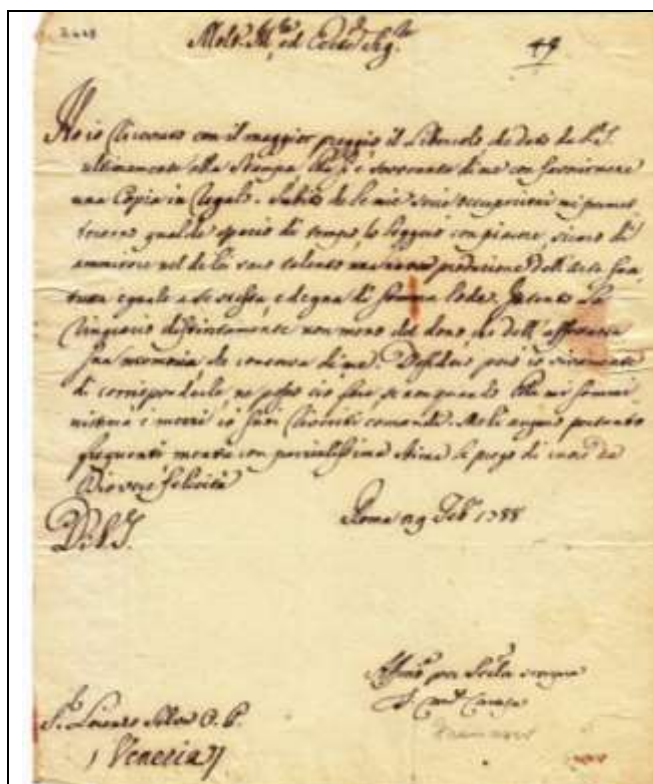 Molt. Ill.re ed Ecc.te Sig.re
49
Ho io ricevuto con il maggior preggio il Libricolo da dato da V.S.
ultimamente alla Stampa con favorirmene
una Copia in regalo. Subito che le mie serie occupazioni mi permet
teranno qualche spazio di tempo, lo leggerò con piacere, sicuro di
ammirare nel di lei raro talento una nuova produzione
eguale a se stessa, e degna di somma lode. Intanto La
ringrazio distintamente non meno del dono, che dell'affettuosa
sua memoria, che conserva di me. Desidero però io vivamente
di corrisponderle, ne posso ciò fare, se non quando Ella mi sommi
nistra i mezzi in suoi riveriti comandi. Me li auguro pertanto
frequenti mentre con parzialissima stima le prego di cuore da
Dio vere felicità
Di V.S.
Roma 19 Feb.o 1788
Aff.mo per
F. Card. Carafa
Francesco
S.r Lorenzo O. P.
Venezia